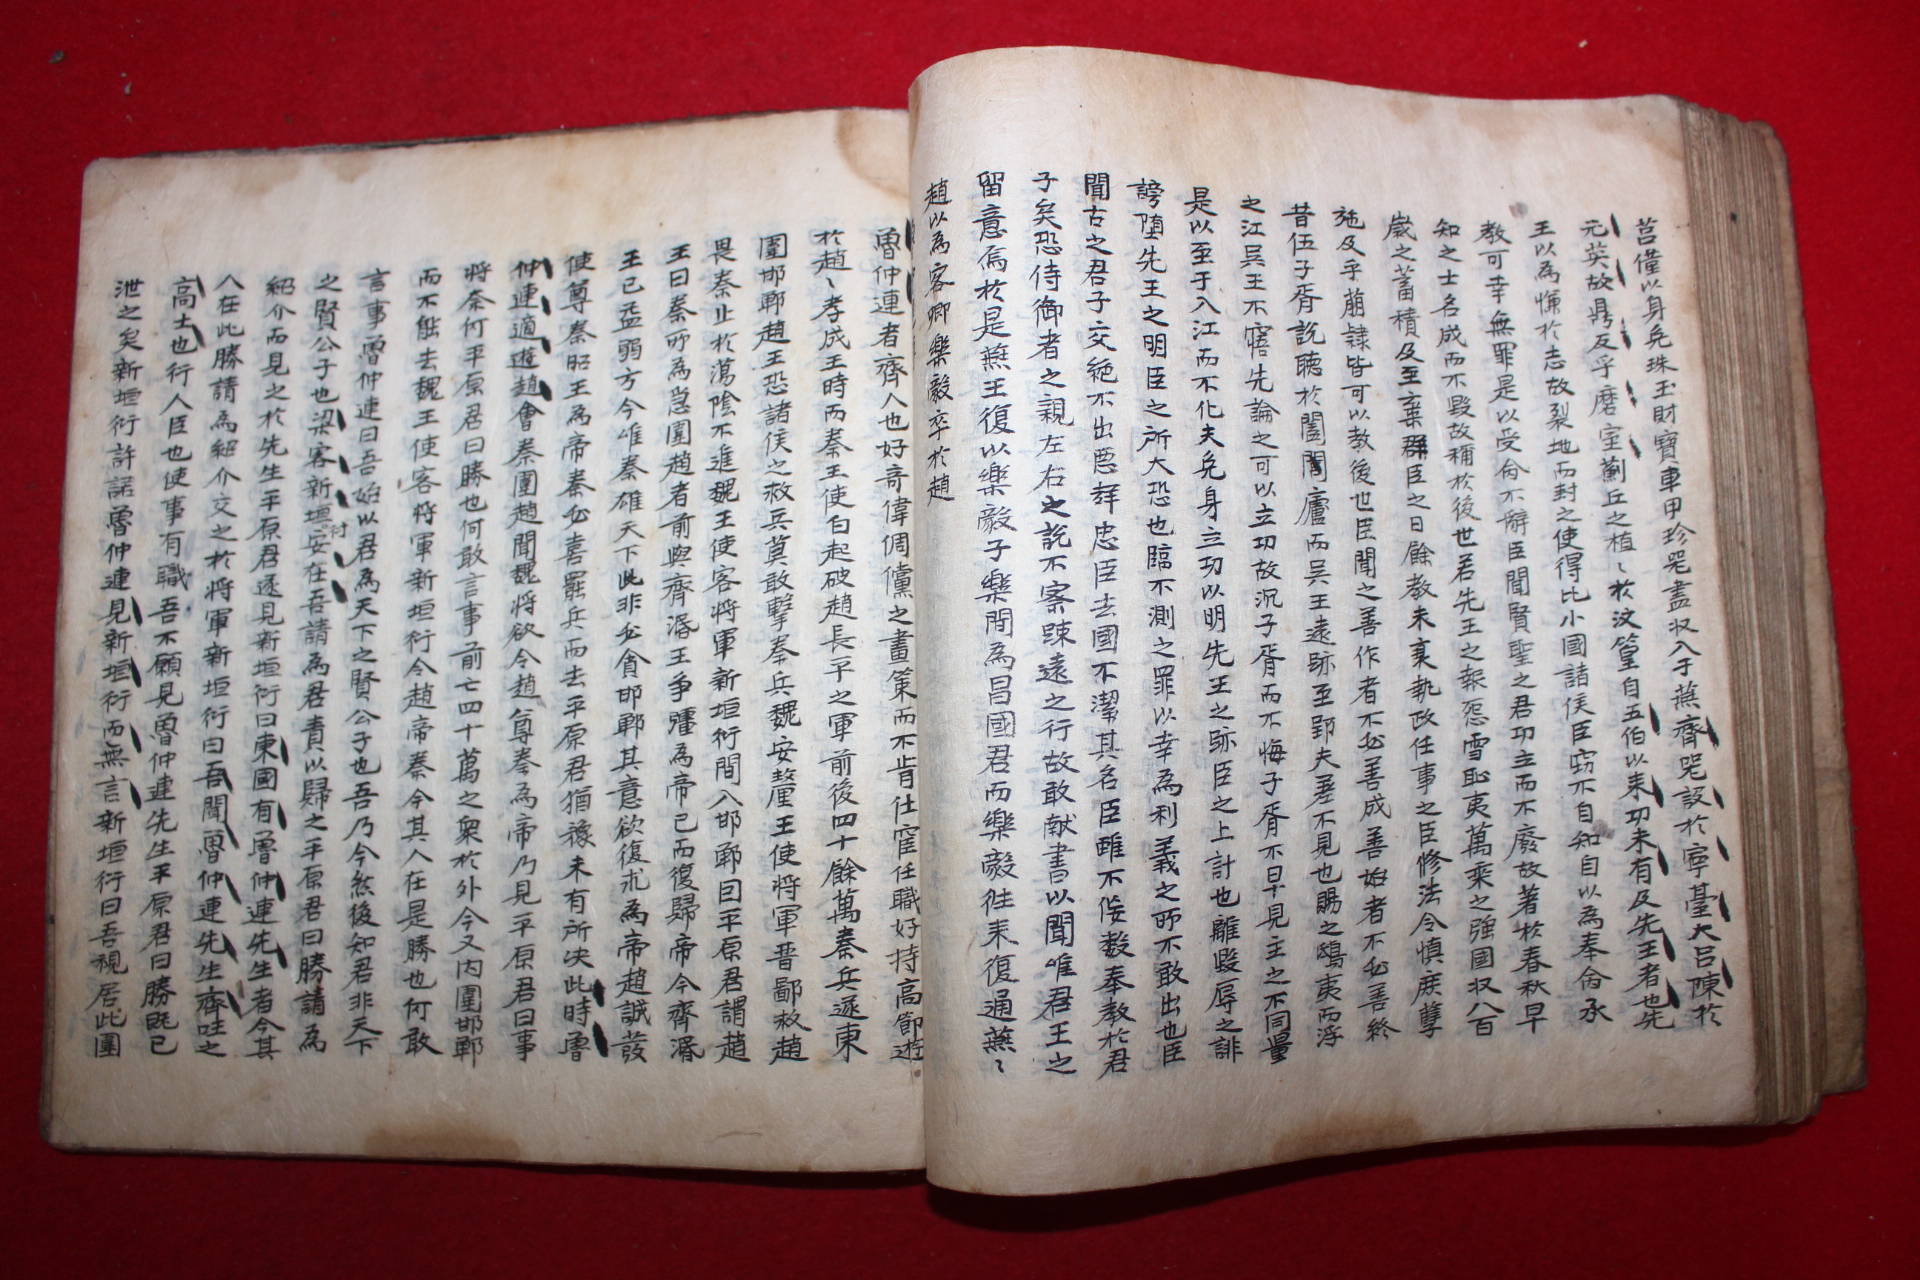 莒僅以身免珠玉財寶車甲珍器盡收入于燕齊器設於寧臺大呂陳於
元英故鼎反乎磨室薊丘之植〻於汶篁自五伯以來功未有及先王者也先
王以為慊於志故裂地而封之使得比小國諸侯臣窃不自知自以為奉命承
教可幸無罪是以受命不辭臣聞賢聖之君功立而不廢故著於春秋早
知之士名成而不毀故稱於後世若先王之報怨雪恥夷萬乘之強國收八百
歲之蓄積及至棄群臣之日餘教未衰執政任事之臣修法令慎庶孽
施及乎萌隸皆可以教後世臣聞之善作者不必善成善始者不必善終
昔伍子胥說聽於闔閭廬而吳王遠跡至郢夫差不見也賜之鴟夷而浮
之江吳王不寤先論之可以立功故沉子胥而不悔子胥不早見主之不同量
是以至于入江而不化夫免身立功以明先王之跡臣之上計也離毀辱之誹
謗墮先王之明臣之所大恐也臨不測之罪以幸為利義之所不敢出也臣
聞古之君子交絶不出惡聲忠臣去國不潔其名臣雖不佞數奉教於君
子矣恐侍御者之親左右之說不察踈遠之行故敢献書以聞唯君王之
留意焉於是燕王復以樂毅子樂間為昌國君而樂毅徃来復通燕〻
趙以為客卿樂毅卒於趙
魯仲連者齊人也好奇偉倜儻之畫策而不肯仕宦任職好持高節遊
於趙〻孝成王時而秦王使白起破趙長平之軍前後四十餘萬秦兵遂東
圍邯鄲趙王恐諸侯之救兵莫敢擊秦兵魏安釐王使將軍晋鄙救趙
畏秦止於蕩陰不進魏王使客將軍新垣衍間入邯鄲因平原君謂趙
王曰秦所為急圍趙者前與齊湣王争彊為帝已而復歸帝今齊湣
王已益弱方今唯秦雄天下此非必貪邯鄲其意欲復求為帝趙誠發
使尊秦昭王為帝秦必喜罷兵而去平原君猶豫未有所决此時魯
仲連適遊趙會秦圍趙聞魏將欲令趙尊秦為帝乃見平原君曰事
將奈何平原君曰勝也何敢言事前亡四十萬之衆於外今又内圍邯鄲
而不能去魏王使客將軍新垣衍令趙帝秦今其人在是勝也何敢
言事魯仲連曰吾始以君為天下之賢公子也吾乃今然後知君非天下
之賢公子也梁客新垣安在吾請為君責以歸之平原君曰勝請為
衍
紹介而見之於先生平原君遂見新垣衍曰東國有魯仲連先生者今其
人在此勝請為紹介交之於將軍新垣衍曰吾聞魯仲連先生齊國之
高士也衍人臣也使事有職吾不願見魯仲連先生平原君曰勝既已
泄之矣新垣衍許諾魯仲連見新垣衍而無言新垣衍曰吾視居此圍